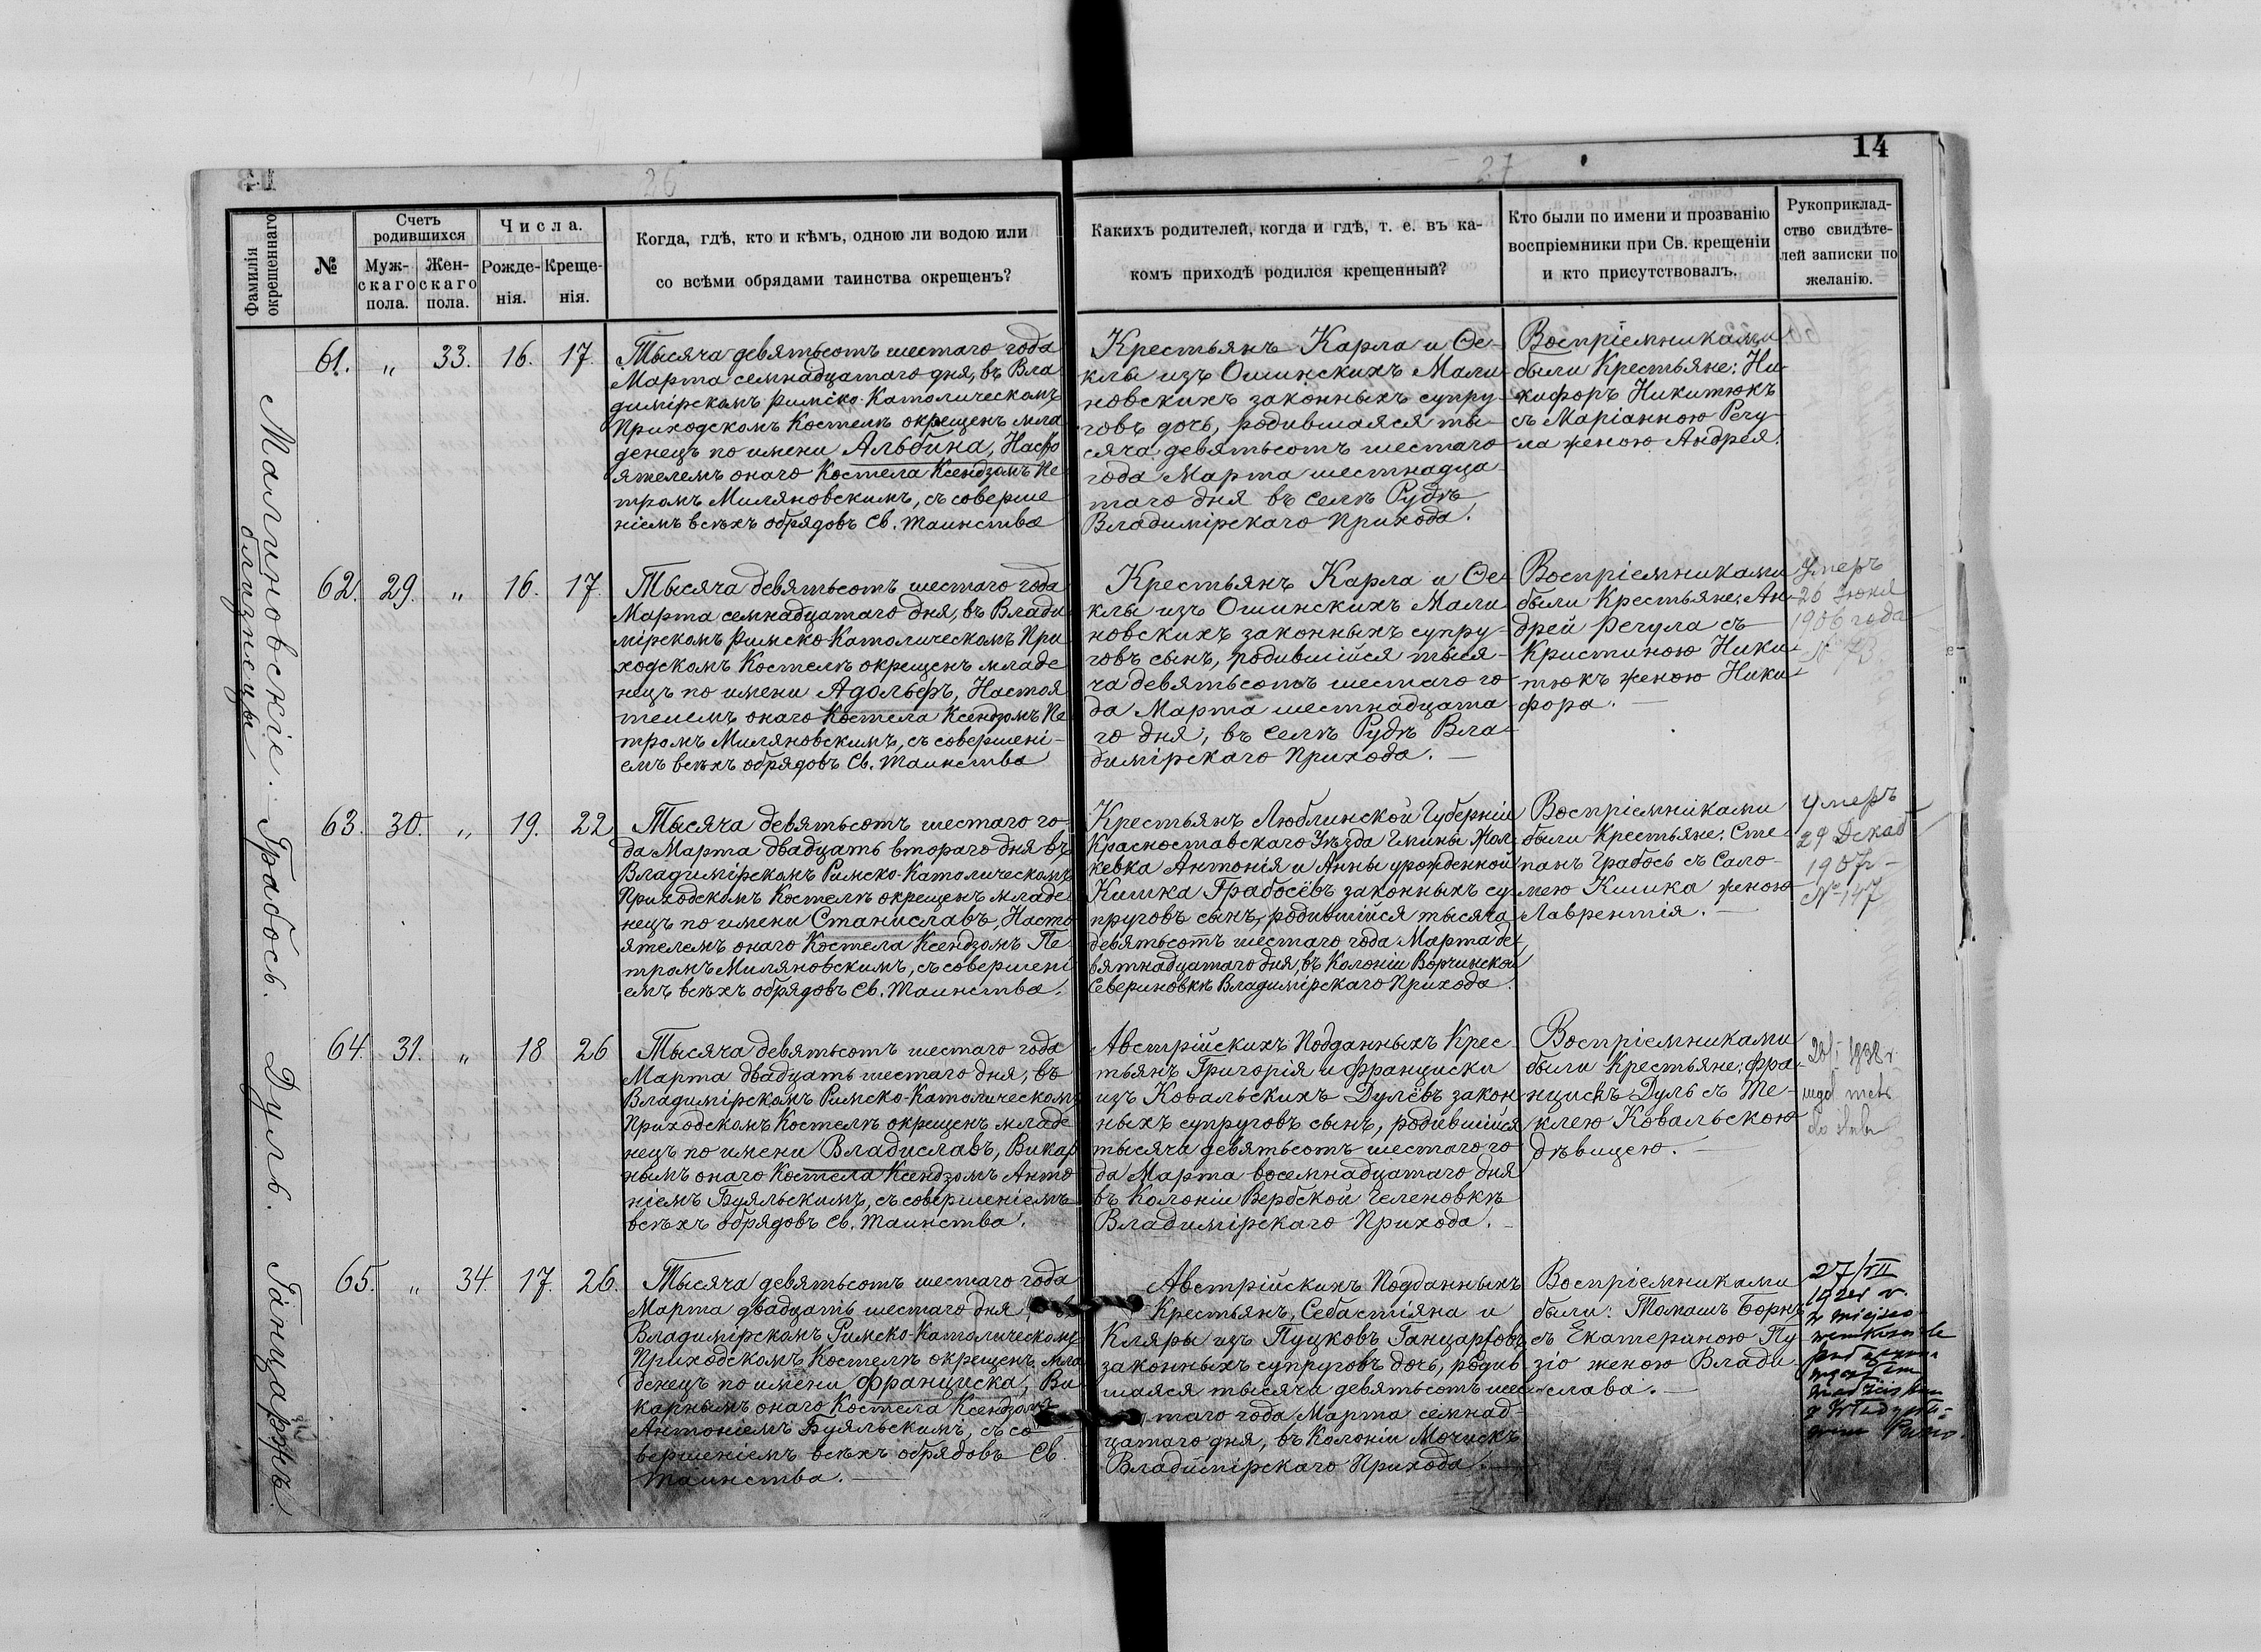 14
26
27
Фамилія окрещеннаго
№
Счетъ родившихся
Мужскаго пола.
Женскаго пола.
Числа.
Рожденія.
Крещенія.
Когда, гдѣ, кто и кѣмъ, одною ли водою или
со всѣми обрядами таинства окрещенъ?
Какихъ родителей, когда и гдѣ, т. е. въ ка-
комъ приходѣ родился крещенный?
Кто были по имени и прозванію
воспріемники при Св. крещеніи
и кто присутствовалъ.
Рукоприклад-
ство свидѣте-
лей записки по
желанію.
Малиновскіе.
близнецы
61. „ 33. 16. 17.
Тысяча девятьсотъ шестаго года
Марта семнадцатаго дня, въ Вла
димірскомъ Римско-Католическомъ
Приходскомъ Костелѣ окрещенъ мла
денецъ по имени Альбина, Насто
ятелемъ онаго Костела Ксендзомъ Пе
тромъ Миляновскимъ, съ соверше
ніемъ всѣхъ обрядовъ Св. Таинства
Крестьянъ Карла и Ѳе-
клы изъ Ошинскихъ Мали
новскихъ законныхъ супру-
говъ дочь, родившаяся ты-
сяча девятьсотъ шестаго
года Марта шестнадца-
таго дня въ селѣ Рудѣ
Владимірскаго Прихода.
Воспріемниками
были Крестьяне: Ни-
кифоръ Никитюкъ
съ Маріанною Регу-
ла женою Андрея.
62. 29. „ 16. 17.
Тысяча девятьсотъ шестаго года
Марта семнадцатаго дня, въ Влади
мірскомъ Римско-Католическомъ При
ходскомъ Костелѣ окрещенъ младе
нецъ по имени Адольфъ, Настоя
телемъ онаго Костела Ксендзомъ Пе
тромъ Миляновскимъ, съ совершені-
емъ всѣхъ обрядовъ Св. Таинства
Крестьянъ Карла и Ѳе-
клы изъ Ошинскихъ Мали
новскихъ законныхъ супру-
говъ сынъ, родившійся тыся-
ча девятьсотъ шестаго го
да Марта шестнадцата-
го дня, въ селѣ Рудѣ Вла-
димірскаго Прихода.
Воспріемниками
были Крестьяне: Ан-
дрей Регула съ
Кристиною Ники-
тюкъ женою Ники-
фора.
Умеръ
26 Іюня
1906 года
№ 73.
Грабось.
63. 30. „ 19. 22
Тысяча девятьсотъ шестаго го-
да Марта двадцать втораго дня въ
Владимірскомъ Римско-Католическомъ
Приходскомъ Костелѣ окрещенъ младе
нецъ по имени Станиславъ, Насто
ятелемъ онаго Костела Ксендзомъ Пе-
тромъ Миляновскимъ, съ совершені
емъ всѣхъ обрядовъ Св. Таинства.
Крестьянъ Люблинской Губерніи
Красноставскаго Уѣзда Гмины Жол-
кевка Антонія и Анны урожденной
Кишка Грабосёвъ законныхъ су-
пруговъ сынъ, родившійся тысяча
девятьсотъ шестаго года Марта де-
вятнадцатаго дня, въ Колоніи Ворчинской
Севериновкѣ Владимірскаго Прихода.
Воспріемниками
были Крестьяне: Сте-
панъ Грабось съ Сало-
меею Кишка женою
Лаврентія.
Умеръ
29 Декаб
1907 г
№ 147
Дуль.
64. 31. „ 18 26
Тысяча девятьсотъ шестаго года
Марта двадцать шестаго дня, въ
Владимірскомъ Римско-Католическомъ
Приходскомъ Костелѣ окрещенъ младе
нецъ по имени Владиславъ, Викар
нымъ онаго Костела Ксендзомъ Анто
ніемъ Буяльскимъ, съ совершеніемъ
всѣхъ обрядовъ Св. Таинства.
Австрійскихъ Подданныхъ Крес-
тьянъ Григорія и Франциски
изъ Ковальскихъ Дулёвъ закон
ныхъ супруговъ сынъ, родившійся
тысяча девятьсотъ шестаго го
да Марта восемнадцатаго дня
въ Колоніи Вербской Геленовкѣ
Владимірскаго Прихода.
Воспріемниками
были Крестьяне: Фра-
нцискъ Дуль съ Те-
клею Ковальскою
дѣвицею.
1938 r.
wyd. metr.
do ślubu
Ганцаржъ.
65. „ 34. 17. 26.
Тысяча девятьсотъ шестаго года
Марта двадцать шестаго дня, въ
Владимірскомъ Римско-Католическомъ
Приходскомъ Костелѣ окрещенъ мла
денецъ по имени Франциска, Ви-
карнымъ онаго Костела Ксендзомъ
Антоніемъ Буяльскимъ, съ со-
вершеніемъ всѣхъ обрядовъ Св.
Таинства.
Австрійскихъ Подданныхъ
Крестьянъ, Себастіяна и
Кляры изъ Пуцковъ Ганцаржовъ
законныхъ супруговъ дочь, родив
шаяся тысяча девятьсотъ шес-
таго года Марта семнад-
цатаго дня, въ Колоніи Мочискъ
Владимірскаго Прихода.
Воспріемниками
были: Томашъ Борнъ
съ Екатериною Пу
зіо женою Влади-
слава.
27/VII